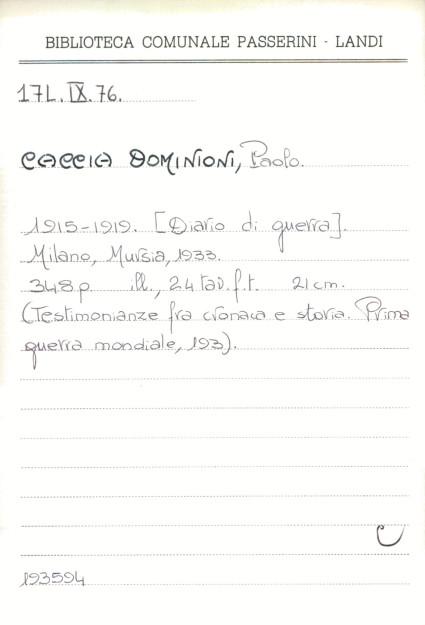 BIBLIOTECA COMUNALE PASSERINI - LANDI
17L.IX.76.
CACCIA DOMINIONI, Paolo.
1915-1919. [Diario di guerra].
Milano, Mursia, 1933.
348 p. ill., 24 tav. f.t. 21 cm.
(Testimonianze fra cronaca e storia. Prima
guerra mondiale, 193).
C
193594